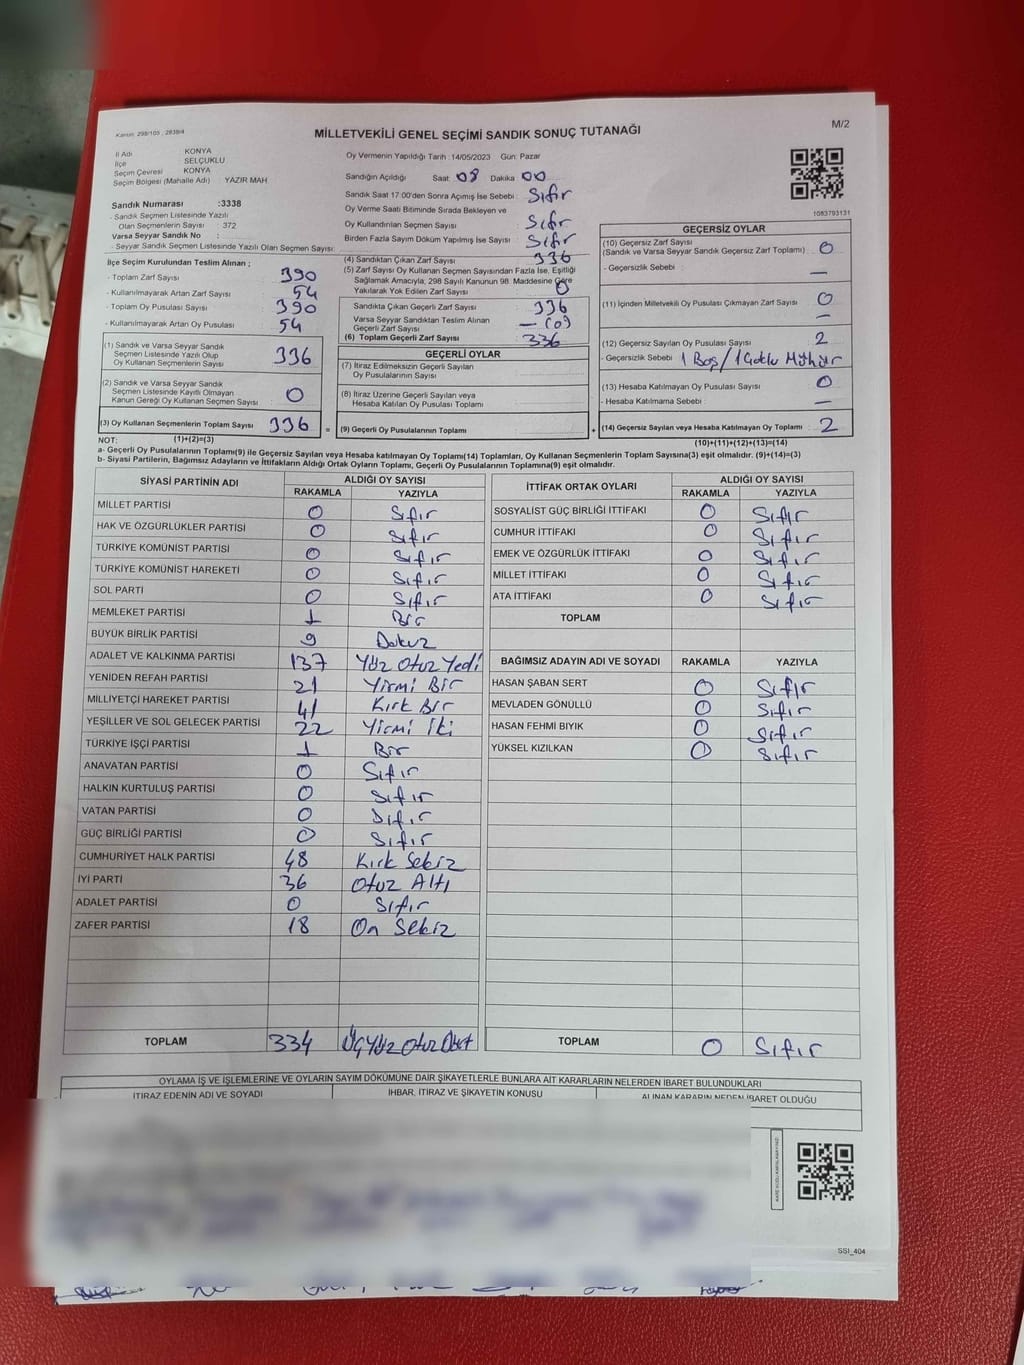 Kanun: 298/105 , 2839/4
MİLLETVEKİLİ GENEL SEÇİMİ SANDIK SONUÇ TUTANAĞI
M/2
İl Adı KONYA
İlçe SELÇUKLU
Seçim Çevresi KONYA
Seçim Bölgesi (Mahalle Adı) : YAZIR MAH
Sandık Numarası :3338
- Sandık Seçmen Listesinde Yazılı
Olan Seçmenlerin Sayısı : 372
Varsa Seyyar Sandık No :
- Seyyar Sandık Seçmen Listesinde Yazılı Olan Seçmen Sayısı:
Oy Vermenin Yapıldığı Tarih : 14/05/2023 Gün: Pazar
Sandığın Açıldığı Saat: 08 Dakika : 00
Sandık Saat 17:00'den Sonra Açımış İse Sebebi : Sıfır
Oy Verme Saati Bitiminde Sırada Bekleyen ve
Oy Kullandırılan Seçmen Sayısı : Sıfır
Birden Fazla Sayım Döküm Yapılmış İse Sayısı : Sıfır
1083793131
İlçe Seçim Kurulundan Teslim Alınan ;
- Toplam Zarf Sayısı : 390
- Kullanılmayarak Artan Zarf Sayısı : 54
- Toplam Oy Pusulası Sayısı : 390
- Kullanılmayarak Artan Oy Pusulası : 54
(1) Sandık ve Varsa Seyyar Sandık
Seçmen Listesinde Yazılı Olup
Oy Kullanan Seçmenlerin Sayısı : 336
(2) Sandık ve Varsa Seyyar Sandık
Seçmen Listesinde Kayıtlı Olmayan
Kanun Gereği Oy Kullanan Seçmen Sayısı : 0
(3) Oy Kullanan Seçmenlerin Toplam Sayısı : 336
(4) Sandıktan Çıkan Zarf Sayısı : 336
(5) Zarf Sayısı Oy Kullanan Seçmen Sayısından Fazla İse, Eşitliği
Sağlamak Amacıyla, 298 Sayılı Kanunun 98. Maddesine Göre
Yakılarak Yok Edilen Zarf Sayısı : 0
Sandıkta Çıkan Geçerli Zarf Sayısı : 336
Varsa Seyyar Sandıktan Teslim Alınan
Geçerli Zarf Sayısı : — (0)
(6) Toplam Geçerli Zarf Sayısı : 336
GEÇERLİ OYLAR
(7) İtiraz Edilmeksizin Geçerli Sayılan
Oy Pusulalarının Sayısı :
(8) İtiraz Üzerine Geçerli Sayılan veya
Hesaba Katılan Oy Pusulası Toplamı :
= (9) Geçerli Oy Pusulalarının Toplamı :
GEÇERSİZ OYLAR
(10) Geçersiz Zarf Sayısı
(Sandık ve Varsa Seyyar Sandık Geçersiz Zarf Toplamı) : 0
- Geçersizlik Sebebi : —
(11) İçinden Milletvekili Oy Pusulası Çıkmayan Zarf Sayısı : 0
—
(12) Geçersiz Sayılan Oy Pusulası Sayısı : 2
- Geçersizlik Sebebi : 1 Boş / 1 Çoklu Mühür
(13) Hesaba Katılmayan Oy Pusulası Sayısı : 0
- Hesaba Katılmama Sebebi : —
+ (14) Geçersiz Sayılan veya Hesaba Katılmayan Oy Toplamı : 2
NOT: (1)+(2)=(3)
(10)+(11)+(12)+(13)=(14)
a- Geçerli Oy Pusulalarının Toplamı(9) ile Geçersiz Sayılan veya Hesaba Katılmayan Oy Toplamı(14) Toplamları, Oy Kullanan Seçmenlerin Toplam Sayısına(3) eşit olmalıdır. (9)+(14)=(3)
b- Siyasi Partilerin, Bağımsız Adayların ve İttifakların Aldığı Ortak Oyların Toplamı, Geçerli Oy Pusulalarının Toplamına(9) eşit olmalıdır.
SİYASİ PARTİNİN ADI ALDIĞI OY SAYISI
RAKAMLA YAZIYLA
MİLLET PARTİSİ 0 Sıfır
HAK VE ÖZGÜRLÜKLER PARTİSİ 0 Sıfır
TÜRKİYE KOMÜNİST PARTİSİ 0 Sıfır
TÜRKİYE KOMÜNİST HAREKETİ 0 Sıfır
SOL PARTİ 0 Sıfır
MEMLEKET PARTİSİ 1 Bir
BÜYÜK BİRLİK PARTİSİ 9 Dokuz
ADALET VE KALKINMA PARTİSİ 137 Yüz Otuz Yedi
YENİDEN REFAH PARTİSİ 21 Yirmi Bir
MİLLİYETÇİ HAREKET PARTİSİ 41 Kırk Bir
YEŞİLLER VE SOL GELECEK PARTİSİ 22 Yirmi İki
TÜRKİYE İŞÇİ PARTİSİ 1 Bir
ANAVATAN PARTİSİ 0 Sıfır
HALKIN KURTULUŞ PARTİSİ 0 Sıfır
VATAN PARTİSİ 0 Sıfır
GÜÇ BİRLİĞİ PARTİSİ 0 Sıfır
CUMHURİYET HALK PARTİSİ 48 Kırk Sekiz
İYİ PARTİ 36 Otuz Altı
ADALET PARTİSİ 0 Sıfır
ZAFER PARTİSİ 18 On Sekiz
TOPLAM 334 Üçyüz Otuz Dört
İTTİFAK ORTAK OYLARI ALDIĞI OY SAYISI
RAKAMLA YAZIYLA
SOSYALİST GÜÇ BİRLİĞİ İTTİFAKI 0 Sıfır
CUMHUR İTTİFAKI 0 Sıfır
EMEK VE ÖZGÜRLÜK İTTİFAKI 0 Sıfır
MİLLET İTTİFAKI 0 Sıfır
ATA İTTİFAKI 0 Sıfır
TOPLAM
BAĞIMSIZ ADAYIN ADI VE SOYADI RAKAMLA YAZIYLA
HASAN ŞABAN SERT 0 Sıfır
MEVLADEN GÖNÜLLÜ 0 Sıfır
HASAN FEHMI BIYIK 0 Sıfır
YÜKSEL KIZILKAN 0 Sıfır
TOPLAM 0 Sıfır
OYLAMA İŞ VE İŞLEMLERİNE VE OYLARIN SAYIM DÖKÜMÜNE DAİR ŞİKAYETLERLE BUNLARA AİT KARARLARIN NELERDEN İBARET BULUNDUKLARI
İTİRAZ EDENİN ADI VE SOYADI İHBAR, İTİRAZ VE ŞİKAYETİN KONUSU ALINAN KARARIN NEDEN İBARET OLDUĞU
SSI_404